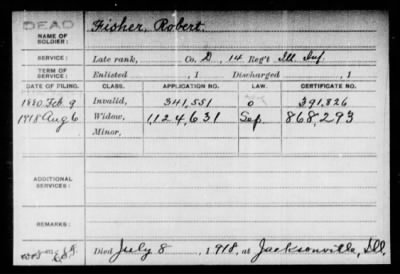 DEAD
NAME OF SOLDIER: Fisher, Robert.
SERVICE: Late rank, Co. D, 14 Reg't Ill. Inf.
TERM OF SERVICE: Enlisted , 1 Discharged , 1
DATE OF FILING. CLASS. APPLICATION NO. LAW. CERTIFICATE NO.
1880 Feb. 9 Invalid, 341,551 391,826
1918 Aug 6 Widow, 1,124,631 Sep. 868,293
Minor,
ADDITIONAL SERVICES:
REMARKS:
Died July 8, 1918, at Jacksonville, Ill.